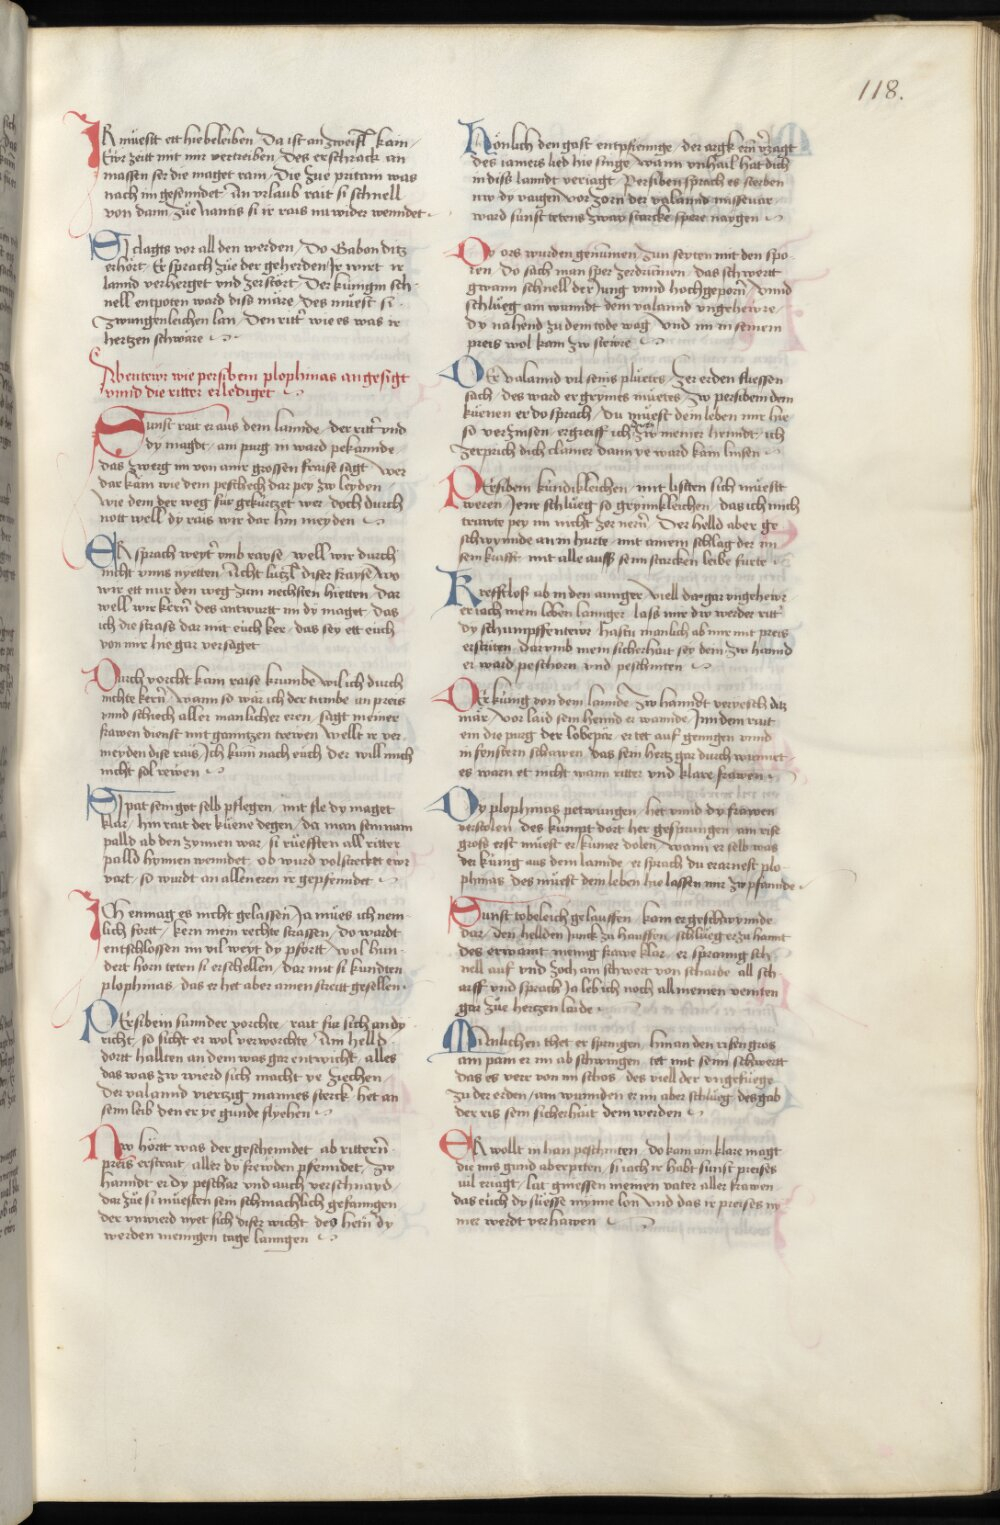 118.
IR müestt ett hie beleiben / Da ist an zweifl kain /
Ewr zeitt mit mir vertreiben / Des erschrack an
massen ser die maget rain / Die züe pritani was
nach im gesenndet / An vrlaub rait si schnell
von dann züe Nantis si ir rais nu wider wenndet
SI clagts vor all den werden / Do Gabon ditz
erhört / Er sprach züe der geherden / Ir wirt ir
lannd verherget vnd zerstört / Der künigin sch
nell entpoten ward dise märe / Des müest si
zwungenleichen lan / Den ritter wie es was ir
hertzen schwäre
Abentewr wie persibein plophinas angesigt
vnnd die ritter erlediget
Sunst rait er aus dem lannde / der ritter vnd
dy magdt / am purg in ward pekannde
das zwerg im von ainr grossen fraise sagt / Wer
dar kam wie dem peschech dar pey zw leyden
wie dem der weg für gekürtzet wer / doch durch
nott well dy rais wir dar hin meyden
ER sprach weytter vmb rayse / well wir durch
nicht vnns nyetten / Acht lützl diser frayse / wo
wir ett nur den weg zum nechsten hietten / dar
well wir kern des antwurtt im dy maget / das
ich die strass dar mit eüch ker / das sey ett eüch
von mir hie gar versaget
Durch vorcht kain raise krumbe wil ich durch
nichte kern / wann so wär ich der tumbe an preis
vnnd schiech aller manlicher eren / sagt meiner
frawen dienst mit ganntzen trewen / wellt ir ver
meyden dise rais / Ich kum nach eüch der will mich
nicht sol rewen
SI pat sein got selb pflegen / mit fle dy maget
klar / hin rait der küene degen / da man sein nam
palld ab den zynnen war / si rüefften all ritter
palld hynnen wenndet / ob wurd volstrecket ewr
vart / so wurdt an allen eren ir gepfenndet
ICh enmag es nicht gelassen / Ja müs ich nem
lich fortt / kern mein rechte strassen / do wardt
entschlossen im vil weyt dy pfortt / wol hun
dert horn teten si erschellen / dar mit si kundten
plophinas / das er het aber ainen streitt gesellen
PErsibein sunnder vorchte / rait für sich an dy
richt / so sicht er wol verworchte / Ain helld
dortt hallten an dem was gar entwicht / alles
das was zw wierd sich macht ye ziechen
der valannd viertzig mannes sterck / het an
seim leib den er ye gunde flyehen
Nw hörtt was der geschenndet / ab rittern
preis erstrait / aller dy frewden pfenndet / zw
hanndt er dy peschar vnd auch verschnayd
dar züe si müesten sein schmachlich gefanngen
der vnwierd nyet sich diser wicht / des hern dy
werden mengen tage lanngen
Hönlich den gast entpfienge / der argk ein verzagt
des iamers lied hie singe / wann vnhail hat dich
in diss lanndt veriagt / Persiben sprach es sterben
nw dy vaigen / vor zorn der valannd missevar
ward sunst tetens zway starcke spere naygen
Dy ors wurden genumen / zun seyten mit den spo
ren / Do sach man sper zerdrumen / das schwertt
gwann schnell der Jung vnnd hochgeporn / vnnd
schlüeg am wunndt dem valannd vngehewre
dy nahend zu dem tode wag / vnd im in seinem
preis wol kam zw stewre
DEr valannd vil seins plüetes / zer erden fliessen
sach / des ward er grymes müetes / zw persibein dem
küenen er do sprach / du müest dein leben mir hie
so verzinsen / ergreiff ich zw meiner henndt / ich
zerprich dich clainer dann ye ward kain linsen
PErsibein kündikleichen / mit listten sich müestt
weren / Jenr schlüeg so grymkleichen / das ich mich
trawte pey im nicht zer nern / Der helld aber ge
schwynnde an in hurte / mit ainem schlag der im
sein kraffte / mit alle auss seim starcken leibe fürte
Krefftlos ab in den annger / viell dar gar vngehewr
er iach mein leben lannger / lass mir dw werder ritter
dy schumpffentewr / hastu manlich ab mir mit preis
erstriten / dar vmb mein sicherhait sey dein / zw hannd
er ward peschorn vnd peschniten
DEr künig von dem lannde / zw hanndt vereisch ditz
mär / vor laid sein hennd er wannde / Inn dem rait
ein die purg der lobepär / er tet auf genngen vnnd
in fenstern schawen / das sein hertz gar durch wunnet
es warn et nicht wann ritter vnd klare frawen
Dy plophinas petwungen / het vnnd dy frawen
verstolen / des kumpt dort her gesprungen / ain rise
gros erst müest er kumer dolen / wann er selb was
der künig aus dem lannde / er sprach du erarnest plo
phinas / des müest dein leben hie lassen mir zw pfannde
Sunst tobeleich gelauffen / kam er geschwynnde
dar / den hellden Junck zu hauffen / schlüeg er zu hannt
des erwaint menig frawe klar / er spranng sch
nell auf vnd zoch ain schwert von schaide / all sch
arff vnd sprach / Ja leb ich noch all meinen veinten
gar züe hertzen laide
Mänlichen thet er springen / hin an den risen gros
ain pain er im ab schwingen / tet mit seim schwertt
das es verr von im schos / des viell der vngefüege
zu der erden / ain wunnden er im aber schlüeg / des gab
der ris sein sicherhait dem werden
ER wollt in han peschniten / do kam ain klare magt
die ims gund aber piten / si iach ir habt sunst preises
vil eriagt / lat gniessen meinen vater aller frawen
das eüch dy süesse mynne lon / vnd das ir preises ny
mer werdt verhawen